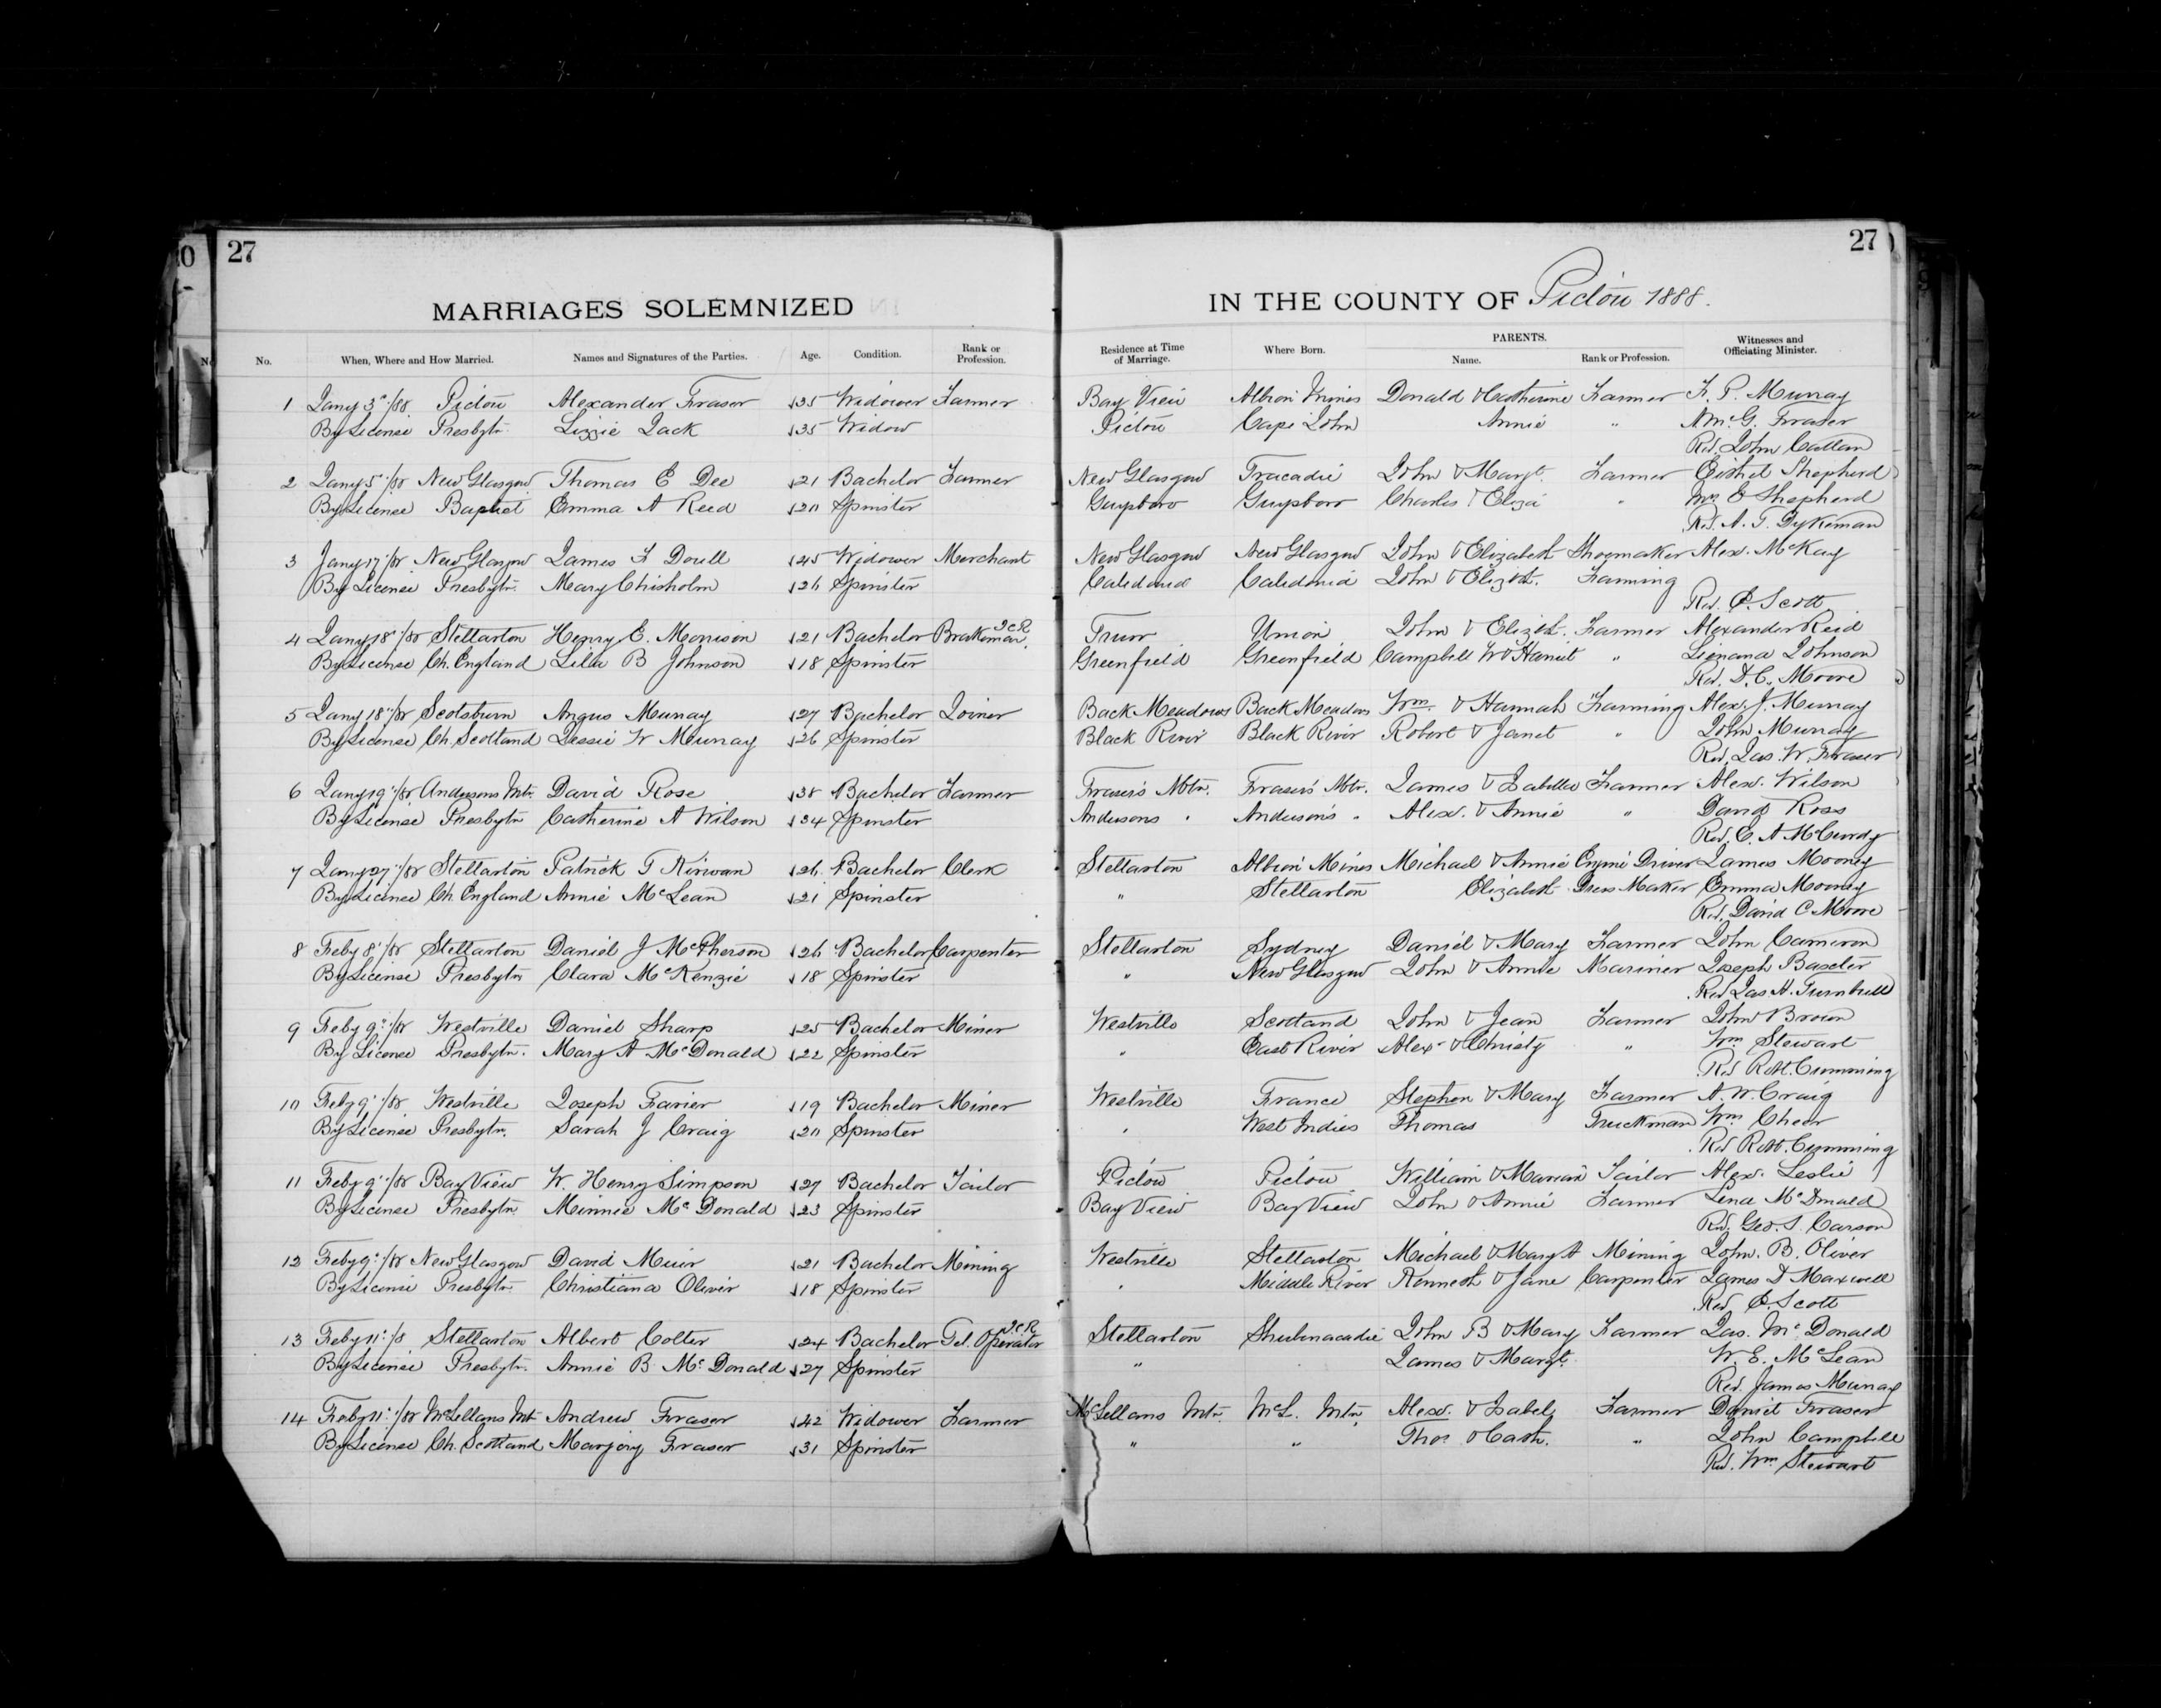 27
27
MARRIAGES SOLEMNIZED IN THE COUNTY OF Pictou 1888.
No. When, Where and How Married. Names and Signatures of the Parties. Age. Condition. Rank or Profession. Residence at Time of Marriage. Where Born. PARENTS. Name. Rank or Profession. Witnesses and Officiating Minister.
1 Jany 3"/88 Pictou Alexander Fraser 35 Widower Farmer Bay View Albion Mines Donald & Catherine Farmer F. P. Murray
By License Presbytn. Lizzie Jack 35 Widow Pictou Cape John Annie " A McG. Fraser
Rev. John Cattan
2 Jany 5"/88 New Glasgow Thomas E Dee 21 Bachelor Farmer New Glasgow Tracadie John & Margt. Farmer Shepherd
By License Baptist Emma A Reed 20 Spinster Guysboro Guysboro Charles & Eliza " Mrs E Shepherd
Rev. A. T. Dykeman
3 Jany 17"/88 New Glasgow James F Doull 45 Widower Merchant New Glasgow New Glasgow John & Elizabeth Shoemaker Alex. McKay
By License Presbytn. Mary Chisholm 26 Spinster Caledonia Caledonia John & Elizbt. Farming
Rev. E. Scott
4 Jany 18"/88 Stellarton Henry E. Morrison 21 Bachelor Brakeman I.C.R. Truro Union John & Elizbt. Farmer Alexander Reid
By License Ch. England Lilla B Johnson 18 Spinster Greenfield Greenfield Campbell W & Harriet " Johnson
Rev. D. C. Moore
5 Jany 18"/88 Scotsburn Angus Murray 27 Bachelor Joiner Back Meadows Back Meadows Wm. & Hannah Farming Alex. J. Murray
By License Ch. Scotland Jessie W Murray 26 Spinster Black River Black River Robert & Janet " John Murray
Rev. Jas. W. Fraser
6 Jany 19"/88 Andersons Mtn. David Rose 38 Bachelor Farmer Fraser's Mtn. Fraser's Mtn. James & Isabella Farmer Alex. Wilson
By License Presbytn Catherine A Wilson 34 Spinster Andersons " Anderson's " Alex. & Annie " David Ross
Rev. E. A McCurdy
7 Jany 27"/88 Stellarton Patrick T Kirwan 26 Bachelor Clerk Stellarton Albion Mines Michael & Annie Engine Driver James Mooney
By License Ch. England Annie McLean 21 Spinster " Stellarton Elizabeth Dress Maker Emma Mooney
Rev. David C Moore
8 Feby 8"/88 Stellarton Daniel J McPherson 26 Bachelor Carpenter Stellarton Sydney Daniel & Mary Farmer John Cameron
By License Presbytn Clara McKenzie 18 Spinster " New Glasgow John & Annie Mariner Joseph Baxter
Rev Jas A. Turnbull
9 Feby 9"/88 Westville Daniel Sharp 25 Bachelor Miner Westville Scotland John & Jean Farmer John Brown
By License Presbytn. Mary A McDonald 22 Spinster " East River Alex. & Christy " Wm Stewart
Rev Robt. Cumming
10 Feby 9"/88 Westville Joseph Farier 19 Bachelor Miner Westville France Stephen & Mary Farmer A. W. Craig
By License Presbytn. Sarah J Craig 20 Spinster " West Indies Thomas Truckman Wm Cheer
Rev Robt. Cumming
11 Feby 9"/88 Bay View W. Henry Simpson 27 Bachelor Tailor Pictou Pictou William & Marian Tailor Alex. Leslie
By License Presbytn. Minnie McDonald 23 Spinster Bay View Bay View John & Annie Farmer Lena McDonald
Rev. Geo. S. Carson
12 Feby 9"/88 New Glasgow David Muir 21 Bachelor Mining Westville Stellarton Michael & Mary A Mining John. B. Oliver
By License Presbytn. Christiana Oliver 18 Spinster " Middle River Kenneth & Jane Carpenter James D Maxwell
Rev. E. Scott
13 Feby 11"/8 Stellarton Albert Colter 24 Bachelor Tel. Operator I.C.R. Stellarton Shubenacadie John B & Mary Farmer Jas. McDonald
By License Presbytn. Annie B. McDonald 27 Spinster " James & Margt. W. E. McLean
Rev. James Murray
14 Feby 11"/88 McLellans Mt Andrew Fraser 42 Widower Farmer McLellans Mtn. McL. Mtn. Alex. & Isabel Farmer Daniel Fraser
By License Ch. Scotland Marjory Fraser 31 Spinster " " Thos & Cath. " John Campbell
Rev. Wm Stewart